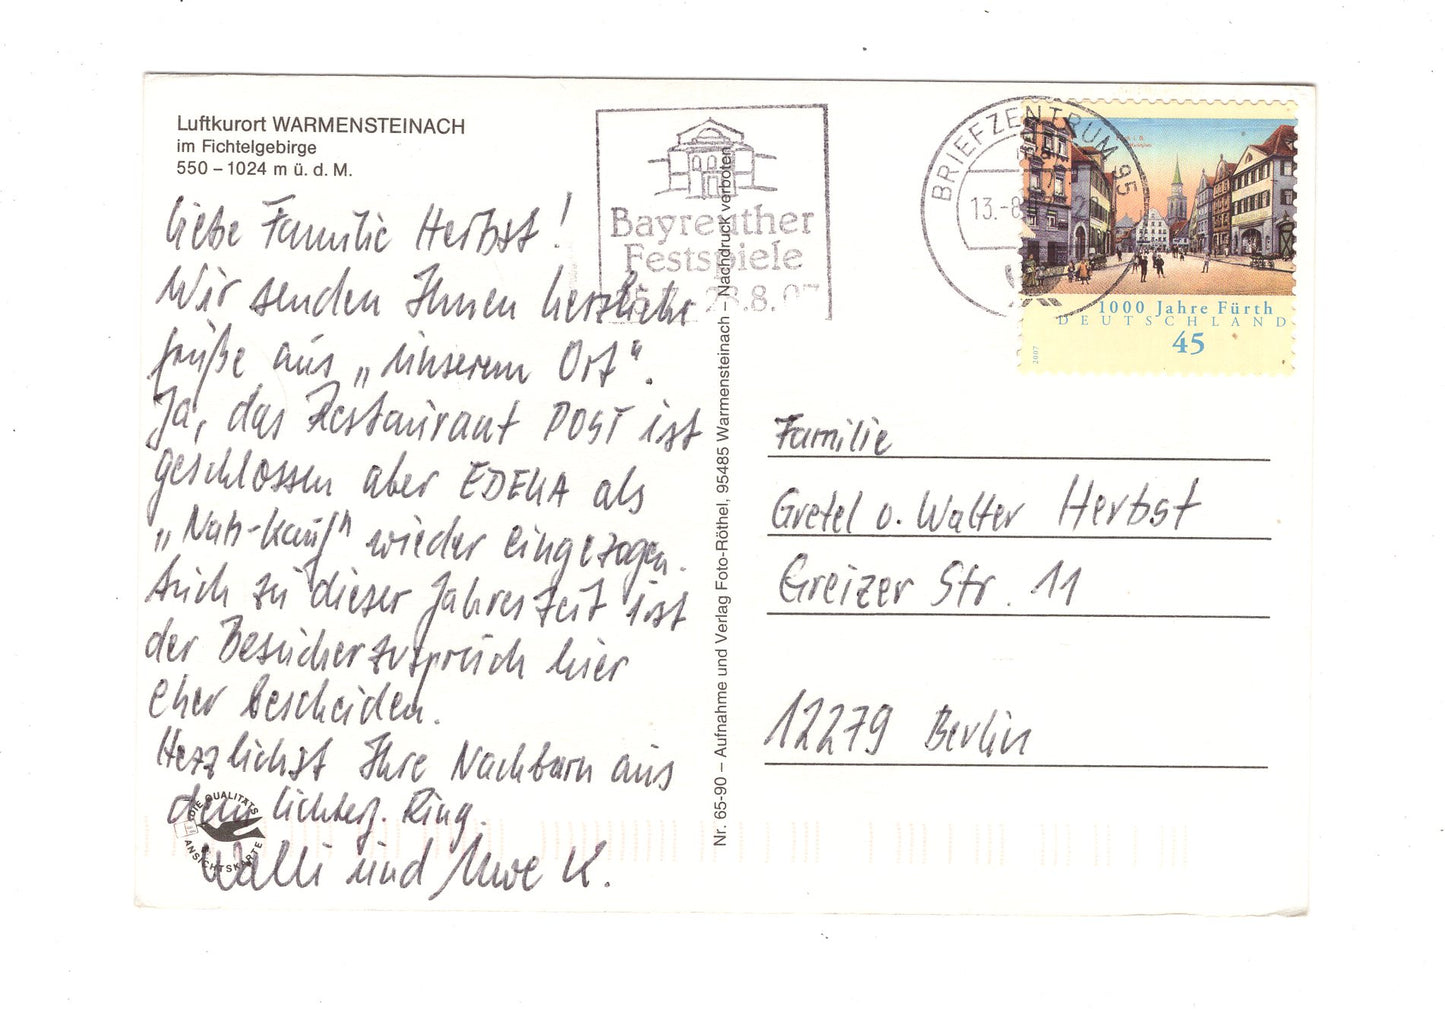 Luftkurort WARMENSTEINACH
im Fichtelgebirge
550 – 1024 m ü. d. M.
Liebe Familie Herbst!
Wir senden Ihnen herzliche
Grüße aus „unserem Ort".
Ja, das Restaurant POST ist
geschlossen aber EDEKA als
„Nah-kauf" wieder eingezogen.
Auch zu dieser Jahreszeit ist
der Besucherzuspruch hier
eher bescheiden.
Herzlichst Ihre Nachbarn aus
dem Lichterf. Ring.
Walli und Uwe K.
DIE QUALITÄTS
ANSICHTSKARTE
Nr. 65-90 – Aufnahme und Verlag Foto-Röthel, 95485 Warmensteinach – Nachdruck verboten
Bayreuther
Festspiele
28.8.07
BRIEFZENTRUM 95
13.-8.
1000 Jahre Fürth
DEUTSCHLAND
45
2007
Familie
Gretel u. Walter Herbst
Greizer Str. 11
12279 Berlin